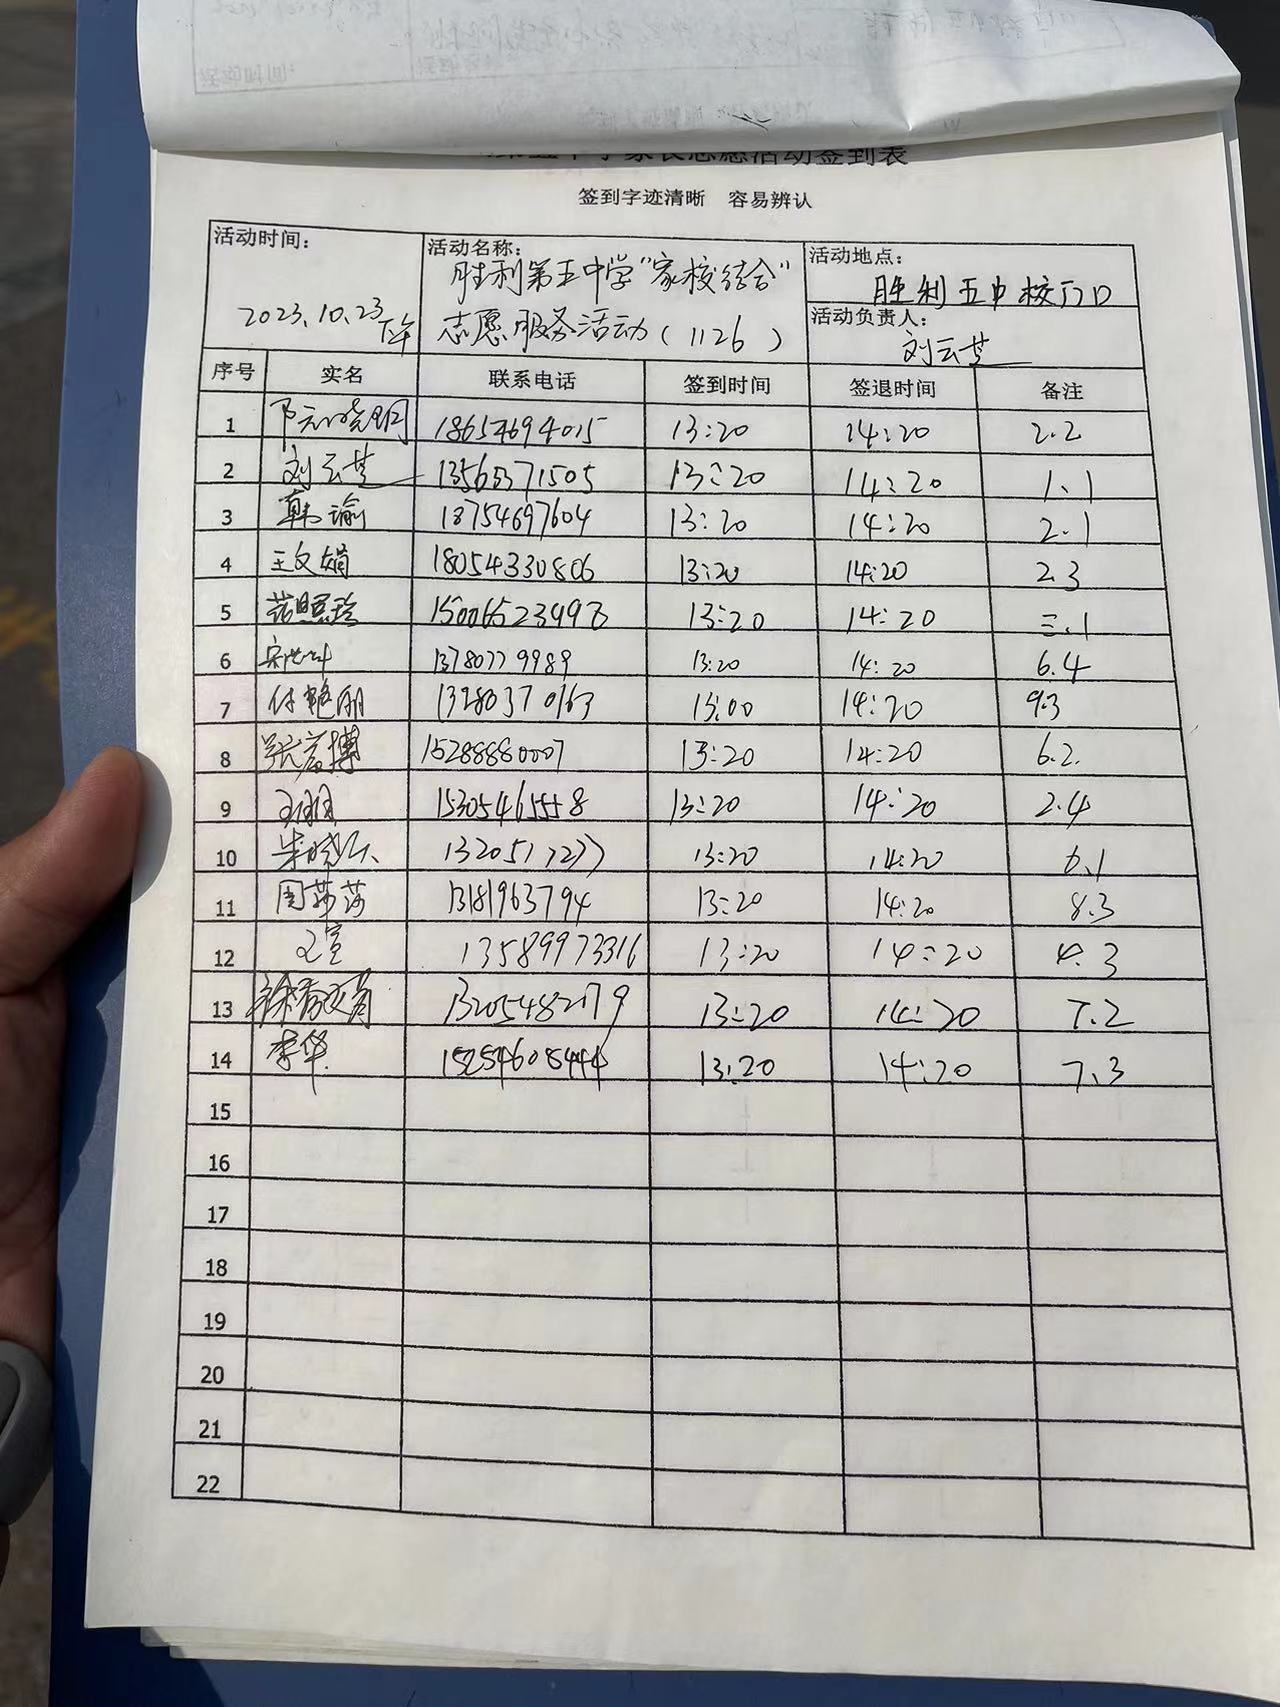 家长志愿活动签到表
签到字迹清晰 容易辨认
活动时间: 活动名称: 活动地点:
胜利第五中学"家校结合" 胜利五中校门口
2023.10.23下午 志愿服务活动(1126) 活动负责人:
刘云芝
序号 实名 联系电话 签到时间 签退时间 备注
1 18654694015 13:20 14:20 2.2
2 刘云芝 13:20 14:20 1.1
3 韩瑜 18754697604 13:20 14:20 2.1
4 王文娟 18054330806 13:20 14:20 2.3
5 13:20 14:20 三.1
6 13780779989 13:20 14:20 6.4
7 付艳丽 13280370163 13:00 14:20 9.3
8 张彦博 15288880007 13:20 14:20 6.2.
9 15305465558 13:20 14:20 2.4
10 13:20 14:20 6.1
11 周莎莎 13181963794 13:20 14:20 8.3
12 王宣 13589973316 13:20 14:20 4.3
13 13:20 14:20 7.2
14 李华 15254608444 13:20 14:20 7.3
15
16
17
18
19
20
21
22